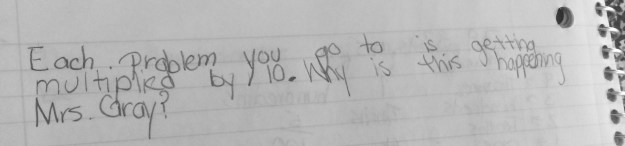 Each problem you go to is getting
multiplied by 10. Why is this happening
Mrs. Gray?